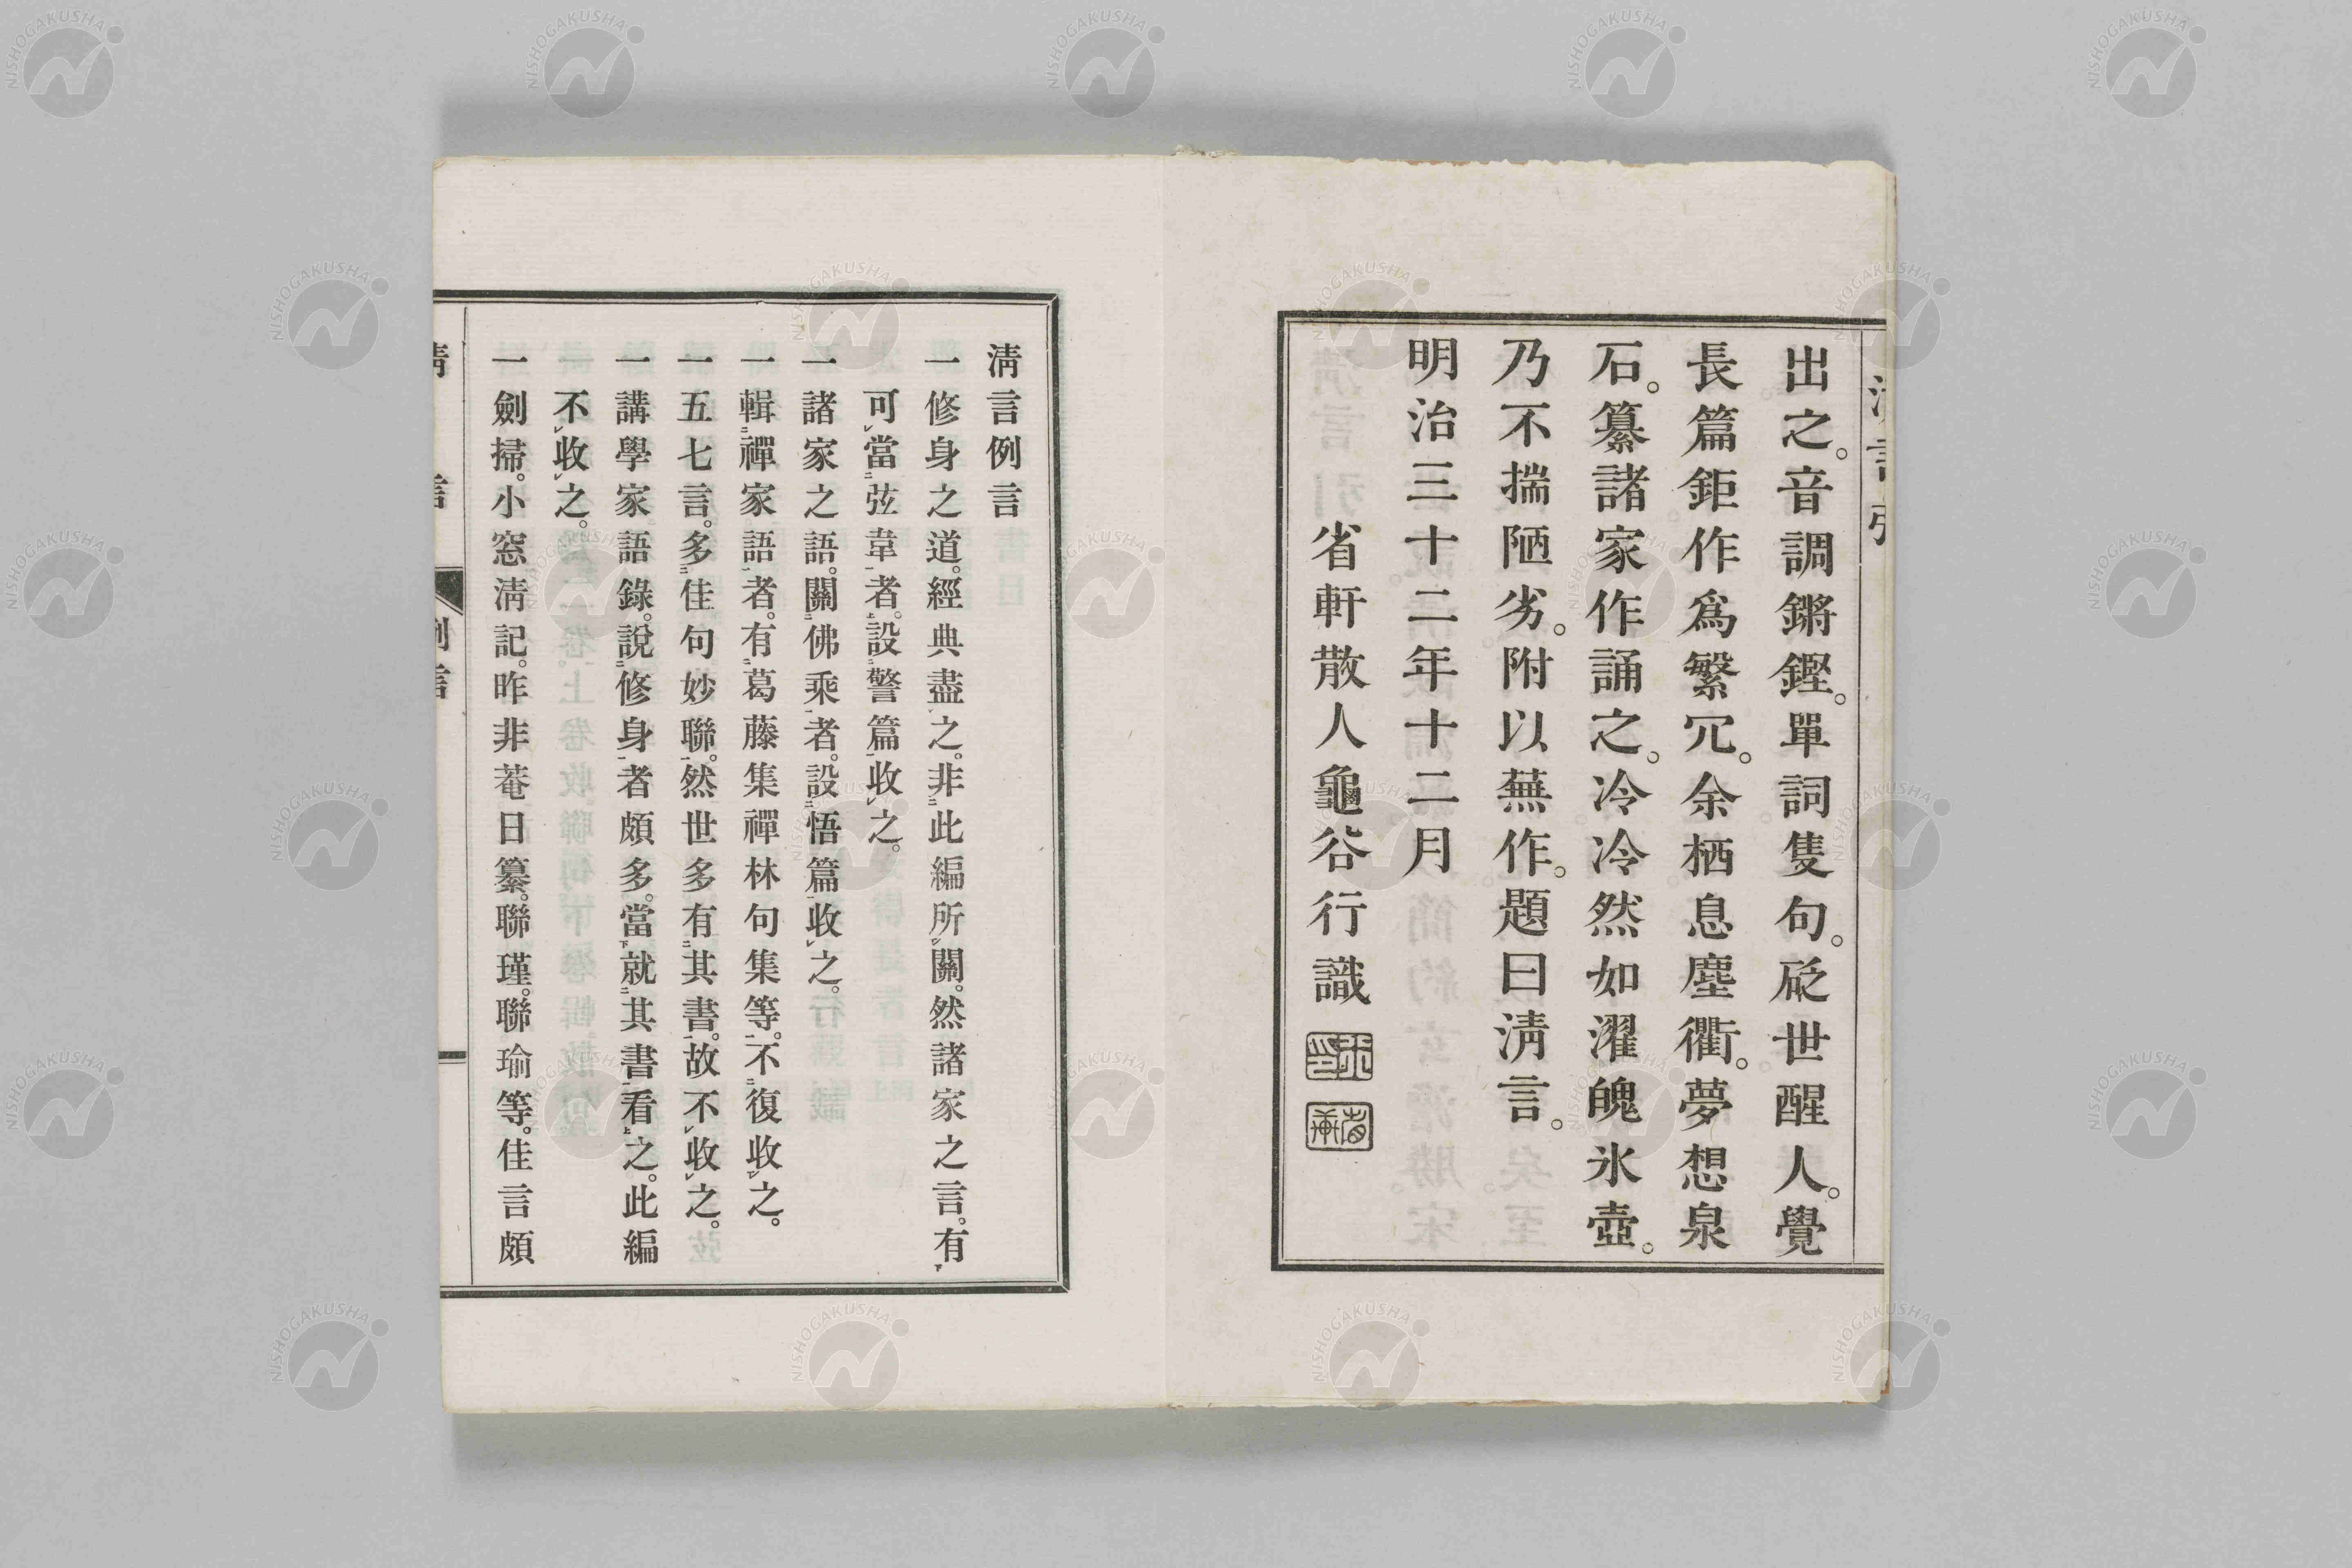 出之。音調鏘鏗。單詞隻句。砭世醒人。覺
長篇鉅作爲繁冗。余栖息塵衢。夢想泉
石。纂諸家作誦之。冷冷然如濯魄氷壺。
乃不揣陋劣。附以蕪作。題曰淸言。
明治三十二年十二月
省軒散人龜谷行識
淸言例言
一修身之道。經典盡之。非二此編所一レ關。然諸家之言。有下
可レ當二弦韋一者。設二警篇一收レ之。
一諸家之語。關二佛乘一者。設二悟篇一收レ之。
一輯二禪家語一者。有二葛藤集禪林句集等一。不二復收一レ之。
一五七言。多二佳句妙聯一。然世多有二其書一。故不レ收レ之。
一講學家語錄。說二修身一者頗多。當下就二其書一看上之。此編
不レ收レ之。
一劍掃。小窓淸記。昨非菴日纂。聯瑾。聯瑜等。佳言頗
淸言 例言
NISHOGAKUSHA